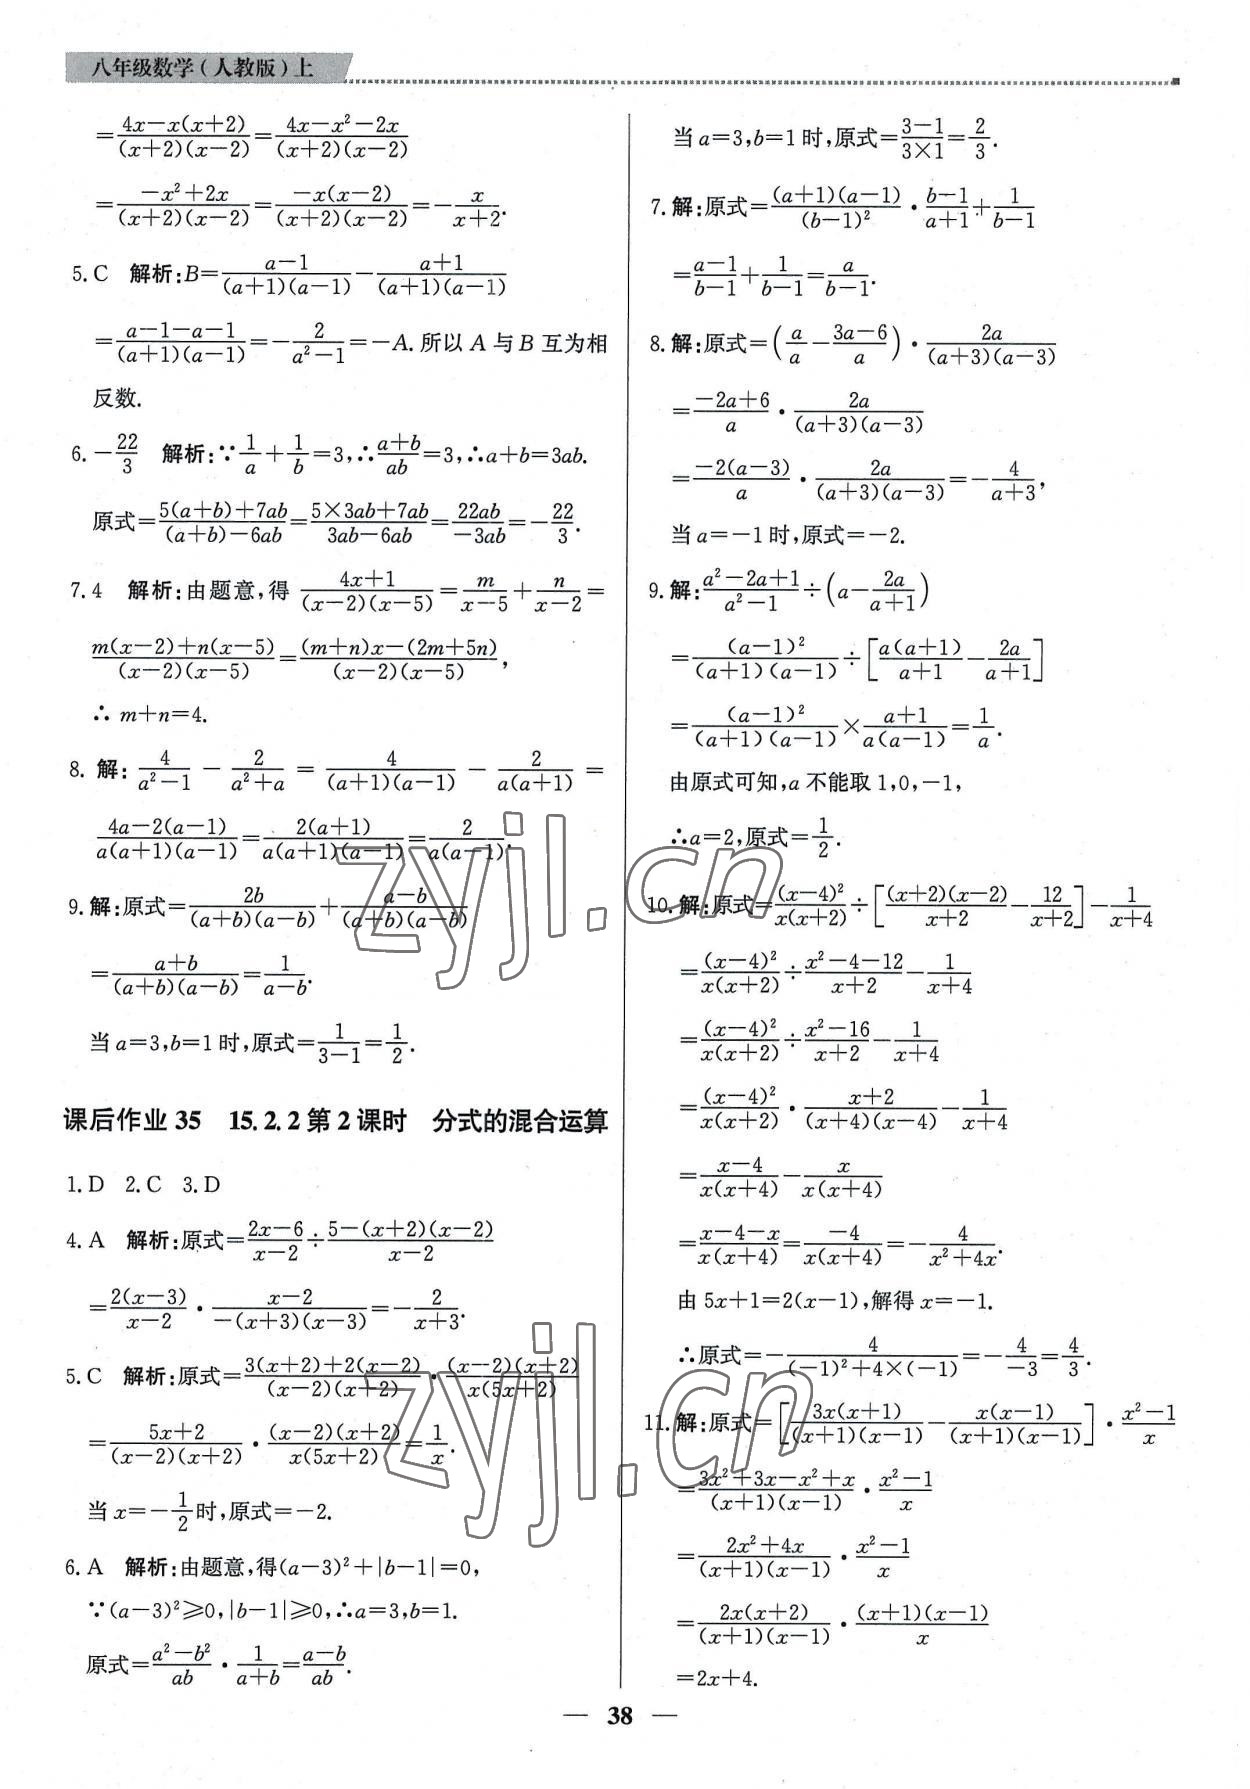 八年级数学(人教版)上
=\frac{4x-x(x+2)}{(x+2)(x-2)}=\frac{4x-x²-2x}{(x+2)(x-2)}
=\frac{-x²+2x}{(x+2)(x-2)}=\frac{-x(x-2)}{(x+2)(x-2)}=-\frac{x}{x+2}.
5.C 解析:B=\frac{a-1}{(a+1)(a-1)}-\frac{a+1}{(a+1)(a-1)}
=\frac{a-1-a-1}{(a+1)(a-1)}=-\frac{2}{a²-1}=-A.所以A与B互为相
反数.
6.-\frac{22}{3} 解析:∵\frac{1}{a}+\frac{1}{b}=3,∴\frac{a+b}{ab}=3,∴a+b=3ab.
原式=\frac{5(a+b)+7ab}{(a+b)-6ab}=\frac{5×3ab+7ab}{3ab-6ab}=\frac{22ab}{-3ab}=-\frac{22}{3}.
7.4 解析:由题意,得\frac{4x+1}{(x-2)(x-5)}=\frac{m}{x-5}+\frac{n}{x-2}=
\frac{m(x-2)+n(x-5)}{(x-2)(x-5)}=\frac{(m+n)x-(2m+5n)}{(x-2)(x-5)},
∴m+n=4.
8.解:\frac{4}{a²-1}-\frac{2}{a²+a}=\frac{4}{(a+1)(a-1)}-\frac{2}{a(a+1)}=
\frac{4a-2(a-1)}{a(a+1)(a-1)}=\frac{2(a+1)}{a(a+1)(a-1)}=\frac{2}{a(a-1)}.
9.解:原式=\frac{2b}{(a+b)(a-b)}+\frac{a-b}{(a+b)(a-b)}
=\frac{a+b}{(a+b)(a-b)}=\frac{1}{a-b}.
当a=3,b=1时,原式=\frac{1}{3-1}=\frac{1}{2}.
课后作业35 15.2.2第2课时 分式的混合运算
1.D 2.C 3.D
4.A 解析:原式=\frac{2x-6}{x-2}÷\frac{5-(x+2)(x-2)}{x-2}
=\frac{2(x-3)}{x-2}·\frac{x-2}{-(x+3)(x-3)}=-\frac{2}{x+3}.
5.C 解析:原式=\frac{3(x+2)+2(x-2)}{(x-2)(x+2)}·\frac{(x-2)(x+2)}{x(5x+2)}
=\frac{5x+2}{(x-2)(x+2)}·\frac{(x-2)(x+2)}{x(5x+2)}=\frac{1}{x}.
当x=-\frac{1}{2}时,原式=-2.
6.A 解析:由题意,得(a-3)²+|b-1|=0,
∵(a-3)²≥0,|b-1|≥0,∴a=3,b=1.
原式=\frac{a²-b²}{ab}·\frac{1}{a+b}=\frac{a-b}{ab}.
当a=3,b=1时,原式=\frac{3-1}{3×1}=\frac{2}{3}.
7.解:原式=\frac{(a+1)(a-1)}{(b-1)²}·\frac{b-1}{a+1}+\frac{1}{b-1}
=\frac{a-1}{b-1}+\frac{1}{b-1}=\frac{a}{b-1}.
8.解:原式=(\frac{a}{a}-\frac{3a-6}{a})·\frac{2a}{(a+3)(a-3)}
=\frac{-2a+6}{a}·\frac{2a}{(a+3)(a-3)}
=\frac{-2(a-3)}{a}·\frac{2a}{(a+3)(a-3)}=-\frac{4}{a+3},
当a=-1时,原式=-2.
9.解:\frac{a²-2a+1}{a²-1}÷(a-\frac{2a}{a+1})
=\frac{(a-1)²}{(a+1)(a-1)}÷[\frac{a(a+1)}{a+1}-\frac{2a}{a+1}]
=\frac{(a-1)²}{(a+1)(a-1)}×\frac{a+1}{a(a-1)}=\frac{1}{a}.
由原式可知,a不能取1,0,-1,
∴a=2,原式=\frac{1}{2}.
10.解:原式=\frac{(x-4)²}{x(x+2)}÷[\frac{(x+2)(x-2)}{x+2}-\frac{12}{x+2}]-\frac{1}{x+4}
=\frac{(x-4)²}{x(x+2)}÷\frac{x²-4-12}{x+2}-\frac{1}{x+4}
=\frac{(x-4)²}{x(x+2)}÷\frac{x²-16}{x+2}-\frac{1}{x+4}
=\frac{(x-4)²}{x(x+2)}·\frac{x+2}{(x+4)(x-4)}-\frac{1}{x+4}
=\frac{x-4}{x(x+4)}-\frac{x}{x(x+4)}
=\frac{x-4-x}{x(x+4)}=\frac{-4}{x(x+4)}=-\frac{4}{x²+4x}.
由5x+1=2(x-1),解得x=-1.
∴原式=-\frac{4}{(-1)²+4×(-1)}=-\frac{4}{-3}=\frac{4}{3}.
11.解:原式=[\frac{3x(x+1)}{(x+1)(x-1)}-\frac{x(x-1)}{(x+1)(x-1)}]·\frac{x²-1}{x}
=\frac{3x²+3x-x²+x}{(x+1)(x-1)}·\frac{x²-1}{x}
=\frac{2x²+4x}{(x+1)(x-1)}·\frac{x²-1}{x}
=\frac{2x(x+2)}{(x+1)(x-1)}·\frac{(x+1)(x-1)}{x}
=2x+4.
— 38 —
zyjl.cn
zyjl.cn